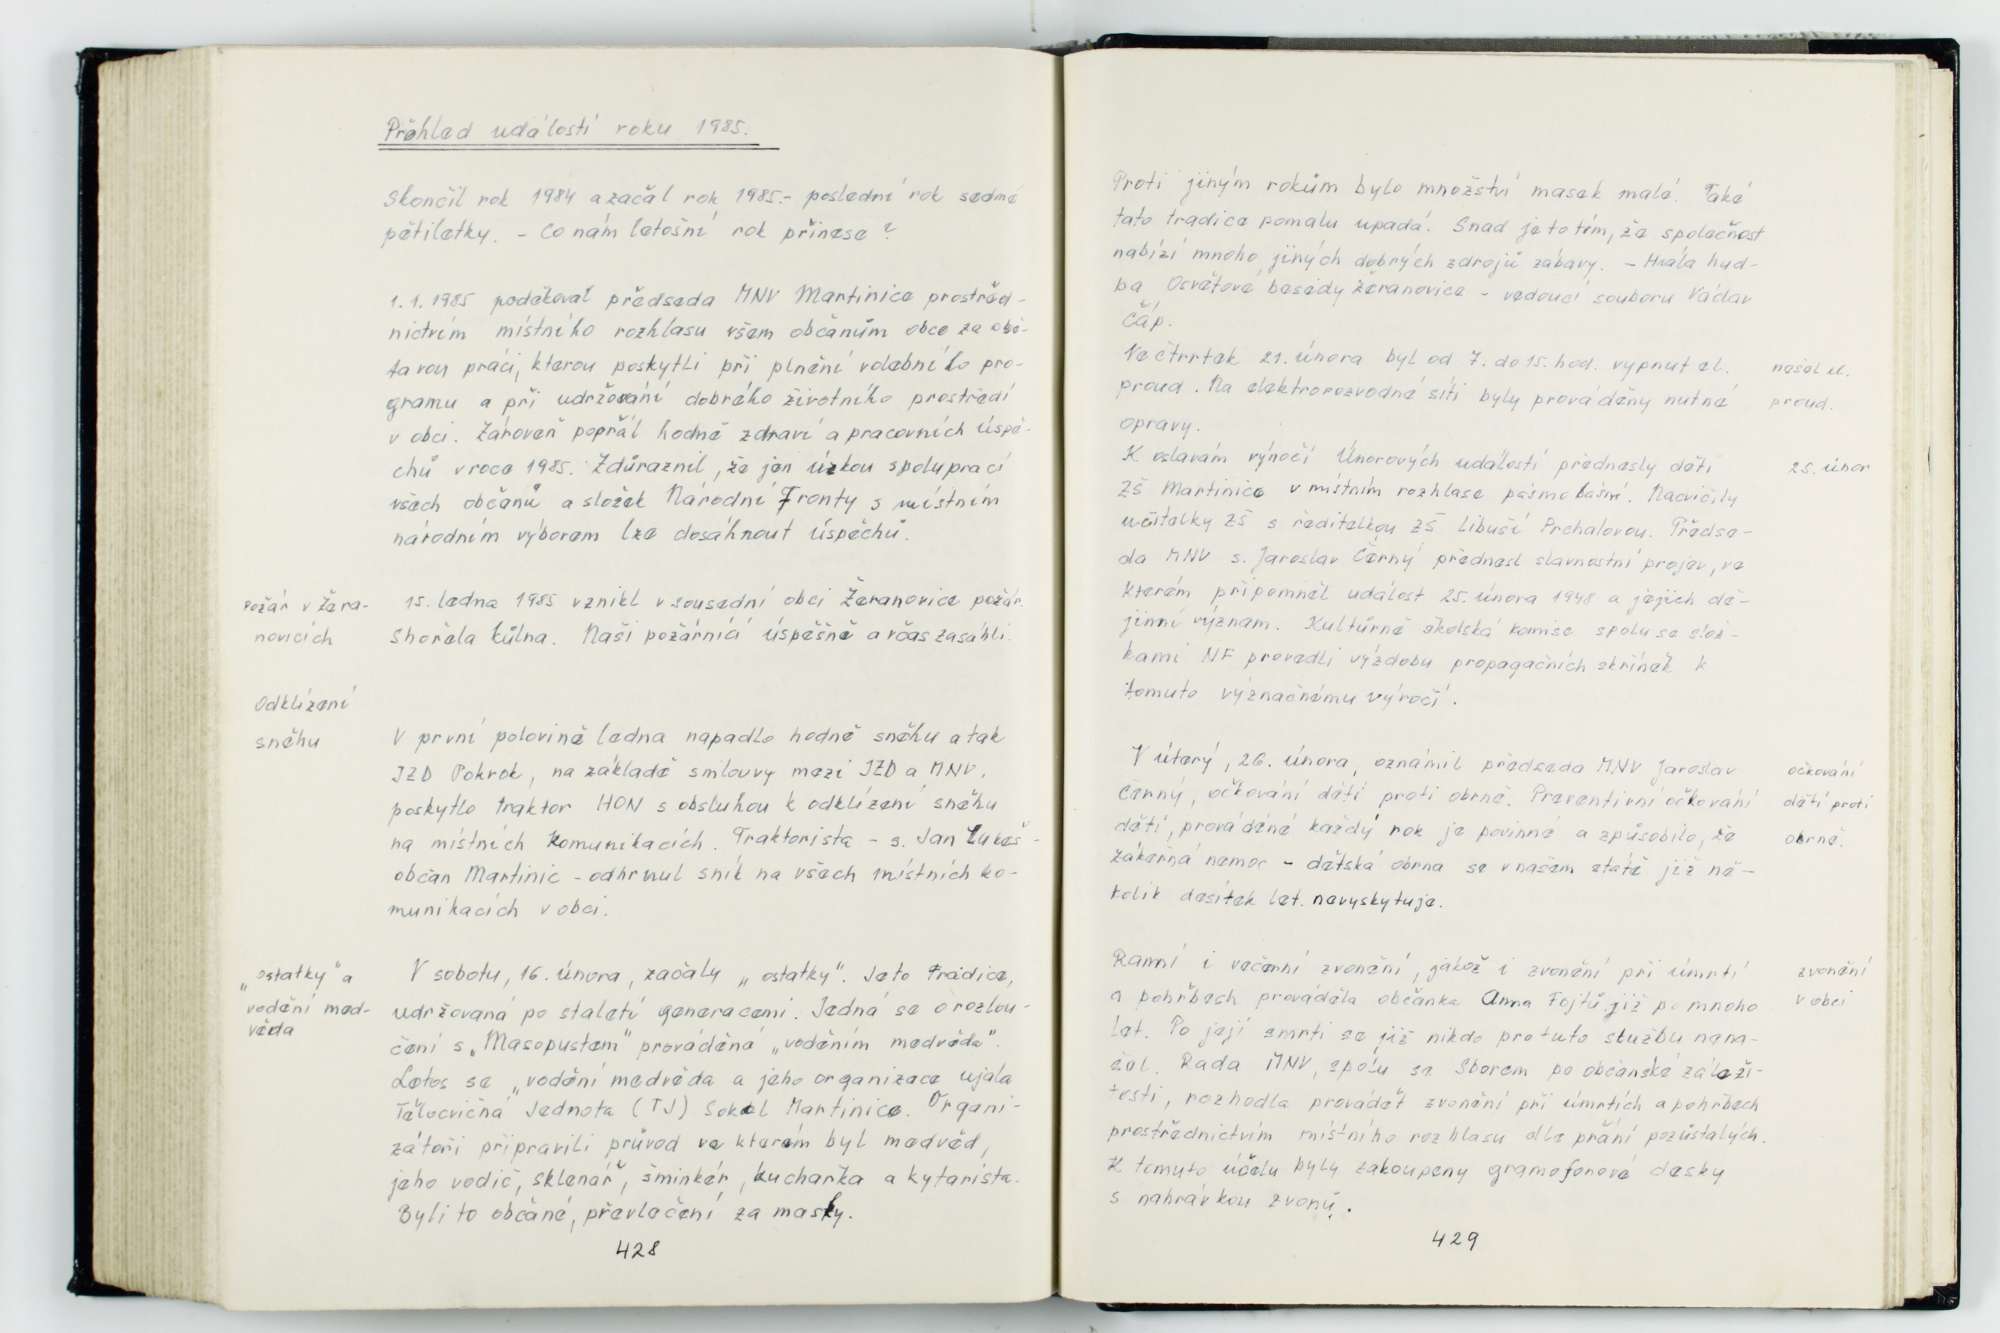 Přehled událostí roku 1985.
Skončil rok 1984 a začal rok 1985.- poslední rok sedmé
pětiletky. - Co nám letošní rok přinese?
1.1.1985 poděkoval předseda MNV Martinice prostřed-
nictvím místního rozhlasu všem občanům obce za obě-
tavou práci, kterou poskytli při plnění volebního pro-
gramu a při udržování dobrého životního prostředí
v obci. Zároveň popřál hodně zdraví a pracovních úspě-
chů v roce 1985. Zdůraznil, že jen úzkou spoluprací
všech občanů a složek Národní Fronty s místním
národním výborem lze dosáhnout úspěchů.
Požár v Žera-
novicích
15. ledna 1985 vznikl v sousední obci Žeranovice požár.
Shořela kůlna. Naši požárníci úspěšně a včas zasáhli.
Odklízení
sněhu
V první polovině ledna napadlo hodně sněhu a tak
JZD Pokrok, na základě smlouvy mezi JZD a MNV,
poskytlo traktor HON s obsluhou k odklízení sněhu
na místních komunikacích. Traktorista - s. Jan Lukeš -
občan Martinic - odhrnul sníh na všech místních ko-
munikacích v obci.
„ostatky" a
vodění med-
věda
V sobotu, 16. února, začaly „ostatky". Jeto tradice,
udržovaná po staletí generacemi. Jedná se o rozlou-
čení s „Masopustem" prováděná „voděním medvěda".
Letos se „vodění medvěda a jeho organizace ujala
Tělocvičná Jednota (TJ) Sokol Martinice. Organi-
zátoři připravili průvod ve kterém byl medvěd,
jeho vodič, sklenář, šminkér, kuchařka a kytarista.
Byli to občané, převlečení za masky.
428
Proti jiným rokům bylo množství masek malé. Také
tato tradice pomalu upadá. Snad je to tím, že společnost
nabízí mnoho jiných dobrých zdrojů zábavy. - Hrála hud-
ba Osvětové besedy Žeranovice - vedoucí souboru Václav
Čáp.
Ve čtvrtek 21. února byl od 7. do 15. hod. vypnut el.
proud. Na elektrorozvodné síti byly prováděny nutné
opravy.
nešel el.
proud.
K oslavám výročí Únorových událostí přednesly děti
ZŠ Martinice v místním rozhlase pásmo básní. Nacvičily
učitelky ZŠ s ředitelkou ZŠ Libuší Prchalovou. Předse-
da MNV s. Jaroslav Černý přednesl slavnostní projev, ve
kterém připomněl událost 25. února 1948 a jejich dě-
jinní význam. Kulturně školská komise spolu se slož-
kami NF provedli výzdobu propagačních skříněk k
tomuto význačnému výročí.
25. únor
V úterý, 26. února, oznámil předseda MNV Jaroslav
Černý, očkování dětí proti obrně. Preventivní očkování
dětí, prováděné každý rok je povinné a způsobilo, že
zákeřná nemoc - dětská obrna se v našem státě již ně-
kolik desítek let nevyskytuje.
očkování
dětí proti
obrně.
Ranní i večerní zvonění, jakož i zvonění při úmrtí
a pohřbech prováděla občanka Anna Fojtů již po mnoho
let. Po její smrti se již nikdo pro tuto službu nena-
šel. Rada MNV, spolu se Sborem po občanské záleži-
tosti, rozhodla provádět zvonění při úmrtích a pohřbech
prostřednictvím místního rozhlasu dle přání pozůstalých.
K tomuto účelu byly zakoupeny gramofonové desky
s nahrávkou zvonů.
zvonění
v obci
429